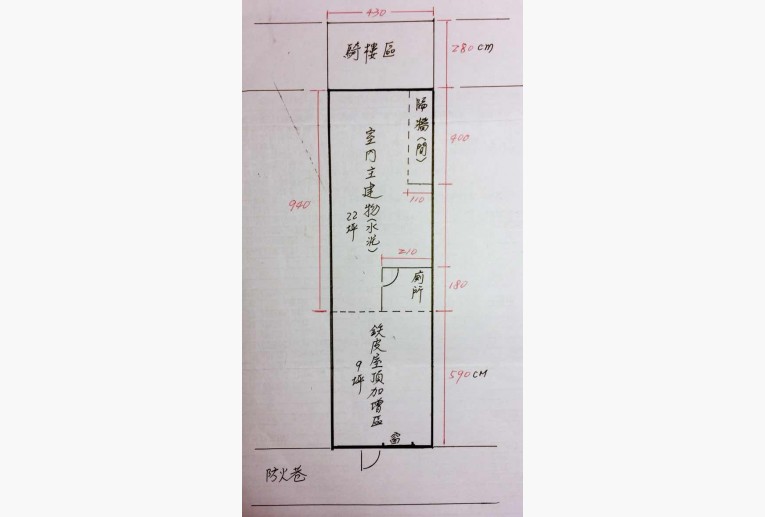 430
騎樓區
280cm
隔牆(間)
400
室內主建物(水泥)
22坪
940
110
210
廁所
180
鉄皮屋頂加增區
9坪
590cm
窗
防火巷